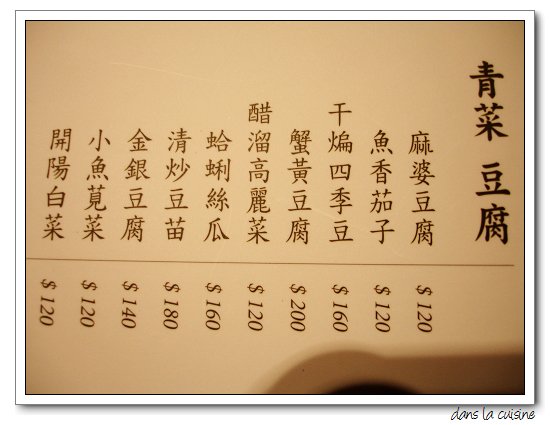 青菜 豆腐
麻婆豆腐 $120
魚香茄子 $120
干煸四季豆 $160
蟹黃豆腐 $200
醋溜高麗菜 $120
蛤蜊絲瓜 $160
清炒豆苗 $180
金銀豆腐 $140
小魚莧菜 $120
開陽白菜 $120
dans la cuisine